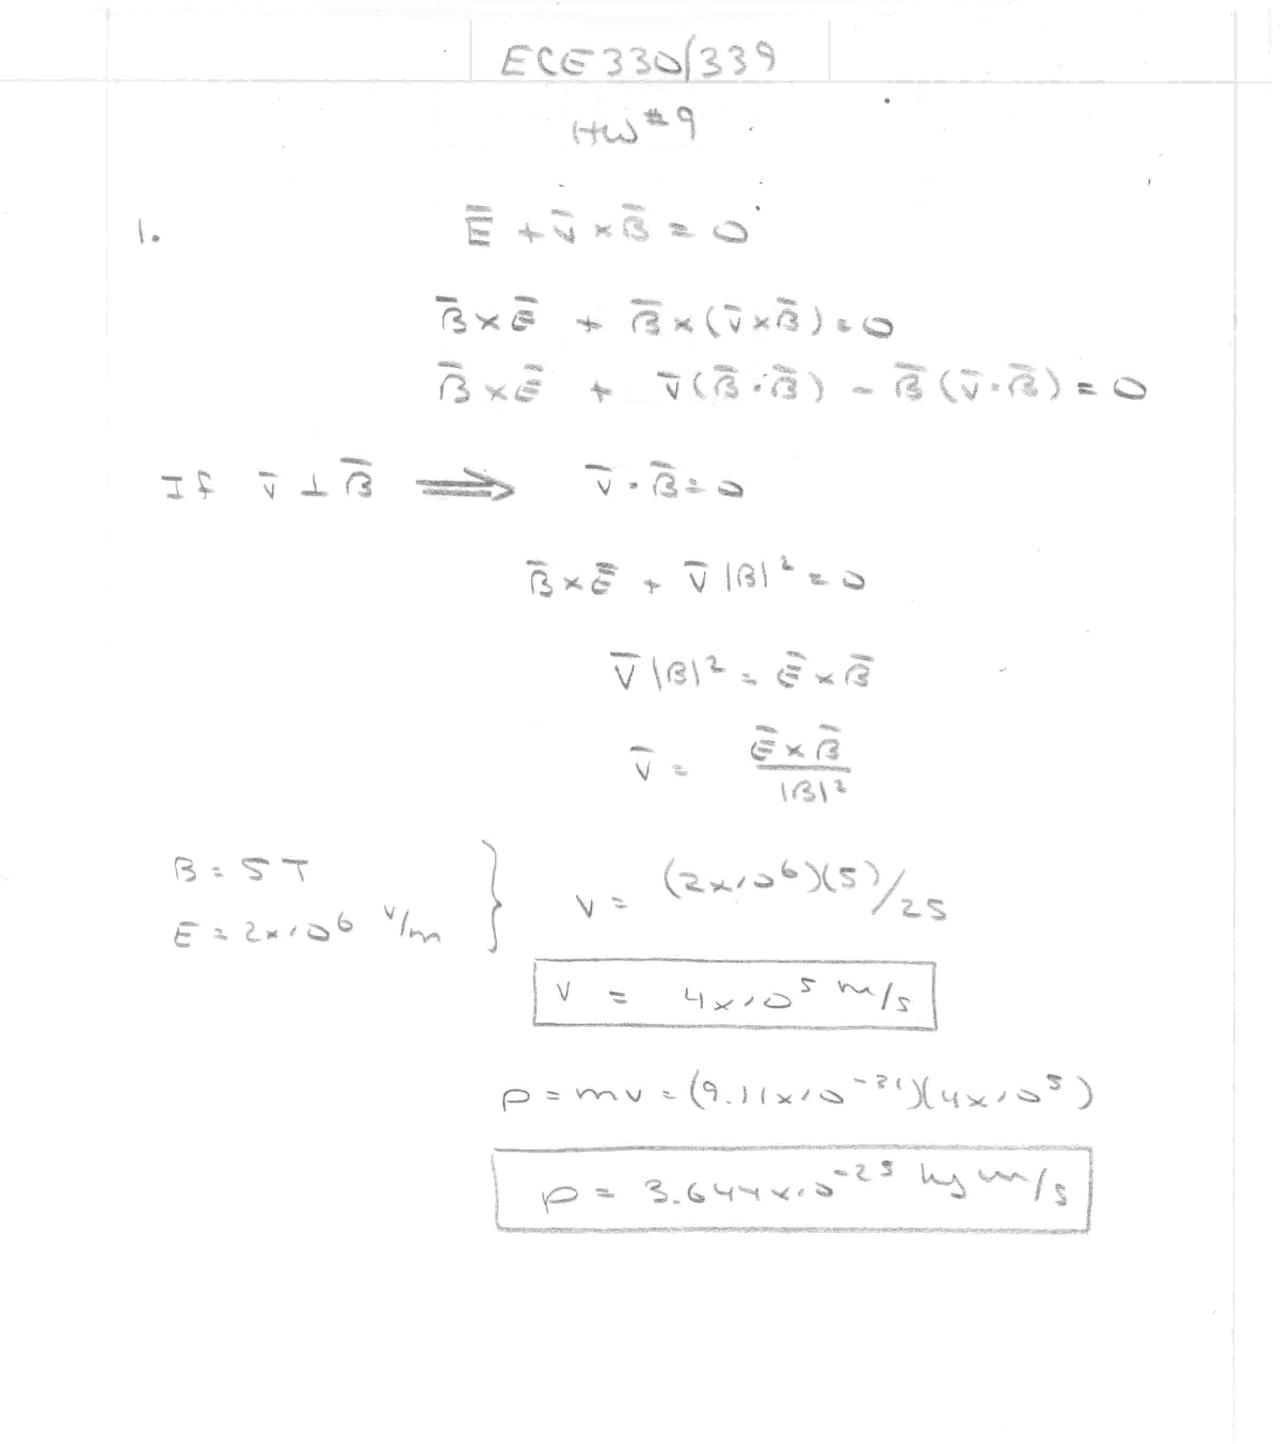 ECE330/339
HW #9
1. E̅ + v̅ × B̅ = 0
B̅ × E̅ + B̅ × (v̅ × B̅) = 0
B̅ × E̅ + v̅(B̅ · B̅) - B̅(v̅ · B̅) = 0
If v̅ ⊥ B̅ ⟹ v̅ · B̅ = 0
B̅ × E̅ + v̅|B|² = 0
v̅|B|² = E̅ × B̅
v̅ = E̅ × B̅ / |B|²
B = 5 T
E = 2×10⁶ V/m } v = (2×10⁶)(5)/25
v = 4×10⁵ m/s
p = mv = (9.11×10⁻³¹)(4×10⁵)
p = 3.644×10⁻²⁵ kg m/s